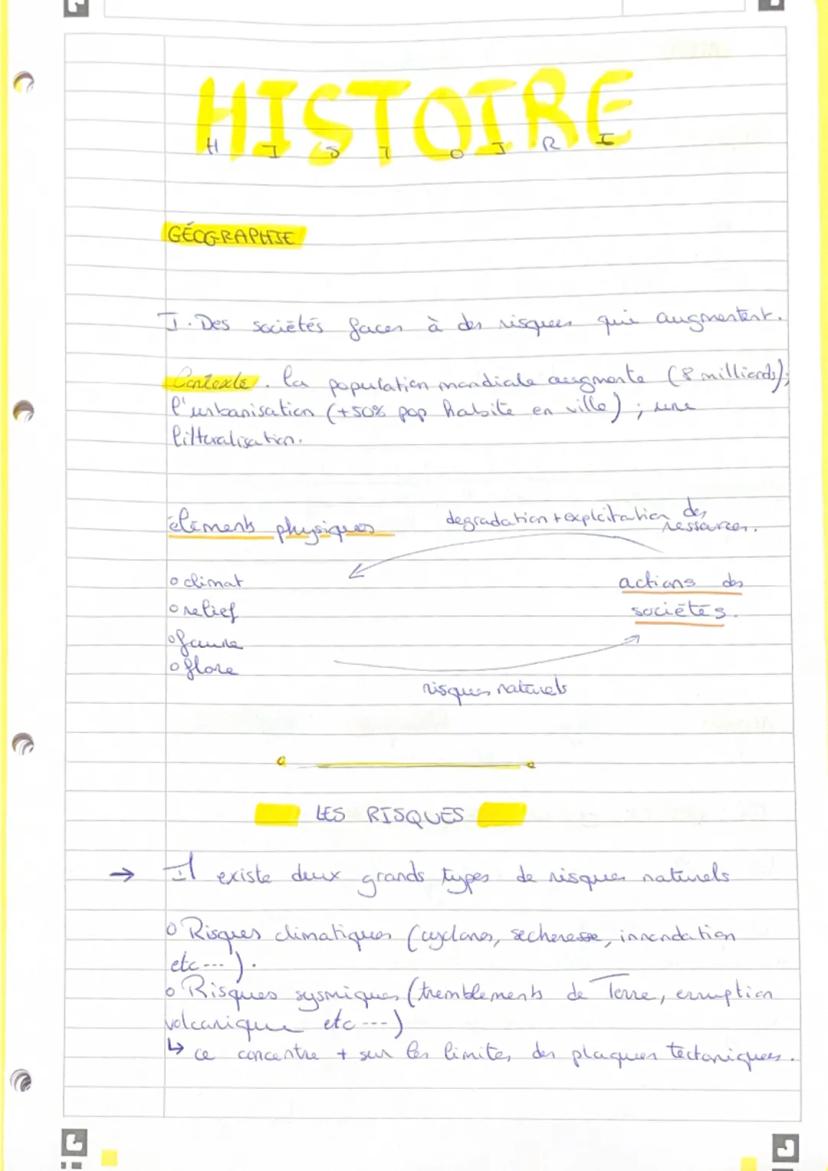 HISTOIRE
H I S T O I R E
GÉOGRAPHIE
I. Des sociétés faces à des risques qui augmentent.
Contexte. la population mondiale augmente (8 milliards);
l'urbanisation (+50% pop habite en ville) ; une
litturalisation.
degradation + exploitation des
éléments physiques
ressources.
o climat
actions des
o relief
sociétés.
o faune
o flore
risques naturels
LES RISQUES
→ Il existe deux grands types de risques naturels
o Risques climatiques (cyclones, secheresse, innondation
etc---).
o Risques sysmiques (tremblements de Terre, erruption
volcanique etc---)
↳ ce concentre + sur les limites des plaques tectoniques.